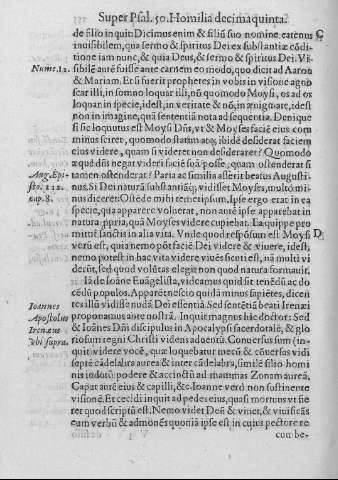 Super Psal. 50. Homilia decimaquinta.
de filio in quit Dicimus enim & filiũ suo nomine eatenus C
inuisibilem, qua sermo & spiritus Dei ex substantiæ cõdi
tione iam nunc, & quia Deus, & sermo & spiritus Dei. Vi
Nume. 12. sibilẽ autẽ fuisse ante carnem eo modo, quo dicit ad Aaron
& Mariam. Et si fuerit prophetes in vobis in visione agno
scar illi, in somno loquar illi, nõ quomodo Moysi, os ad os
loquar in specie, idest, in veritate & nõ, in ænigmate, idest
non in imagine, quã sententiã nota ad sequentia. Denique
si sic loquutus est Moysi Dñs, vt & Moyses faciẽ eius com
minus sciret, quomodo statim atq; ibidẽ desiderat faciem
eius videre, quam si videret non desideraret? Quomodo
æquè dñs negat videri faciẽ suã posse, quam ostenderat si
Aug. Epi- tamen ostenderat? Paria ac similia asserit beatus Augusti-
sto. 112. nus. Si Dei naturã substantiãq; vidisset Moyses, multò mi-
cap. 8. nus diceret: Ostẽde mihi temetipsum. Ipse ergo erat in ea
specie, qua apparere voluerat, non autẽ ipse apparebat in
natura ppria, quã Moyses videre cupiebat. Ea quippe pro
mittit sanctis in alia vita. Vnde quod respõsum est Moysi D
verũ est, quia nemo põt faciẽ Dei videre & viuere, idest,
nemo potest in hac vita videre viuẽs sicuti est, nã multi vi
derũt, sed quod volũtas elegit non quod natura formauit.
Ià de Ioãne Euãgelista, videamus quid sit tenẽdũ ac do
cẽdũ populos. Apparet nescio quidã minus sapiẽtes, dicen
tes illũ vidisse nudã Dei essentiã. Sed sentẽtiã beati Irenæi
Ioannes proponamus ante nostrã. Inquit magnus hic doctor: Sed
Apostolus & Ioãnes Dñi discipulus in Apocalypsi sacerdotalẽ, & glo
Irenæus riosum regni Christi videns aduentũ. Conuersus sum (in-
vbi supra. quit) videre vocẽ, quæ loquebatur mecũ & cõuersus vidi
septẽ cãdelabra aurea & inter cãdelabra, similẽ filio homi
nis indutũ podere & accinctũ ad mammas Zonam aureã.
Caput autẽ eius & capilli, &c. Ioanne verò non sostinente
visionẽ. Et cecidi inquit ad pedes eius, quasi mortuus vt fie
ret quod scriptũ est. Nemo videt Deũ & viuet, & viuificãs
eum verbũ & admonẽs quoniã ipse est in cuius pectore re
cum be-